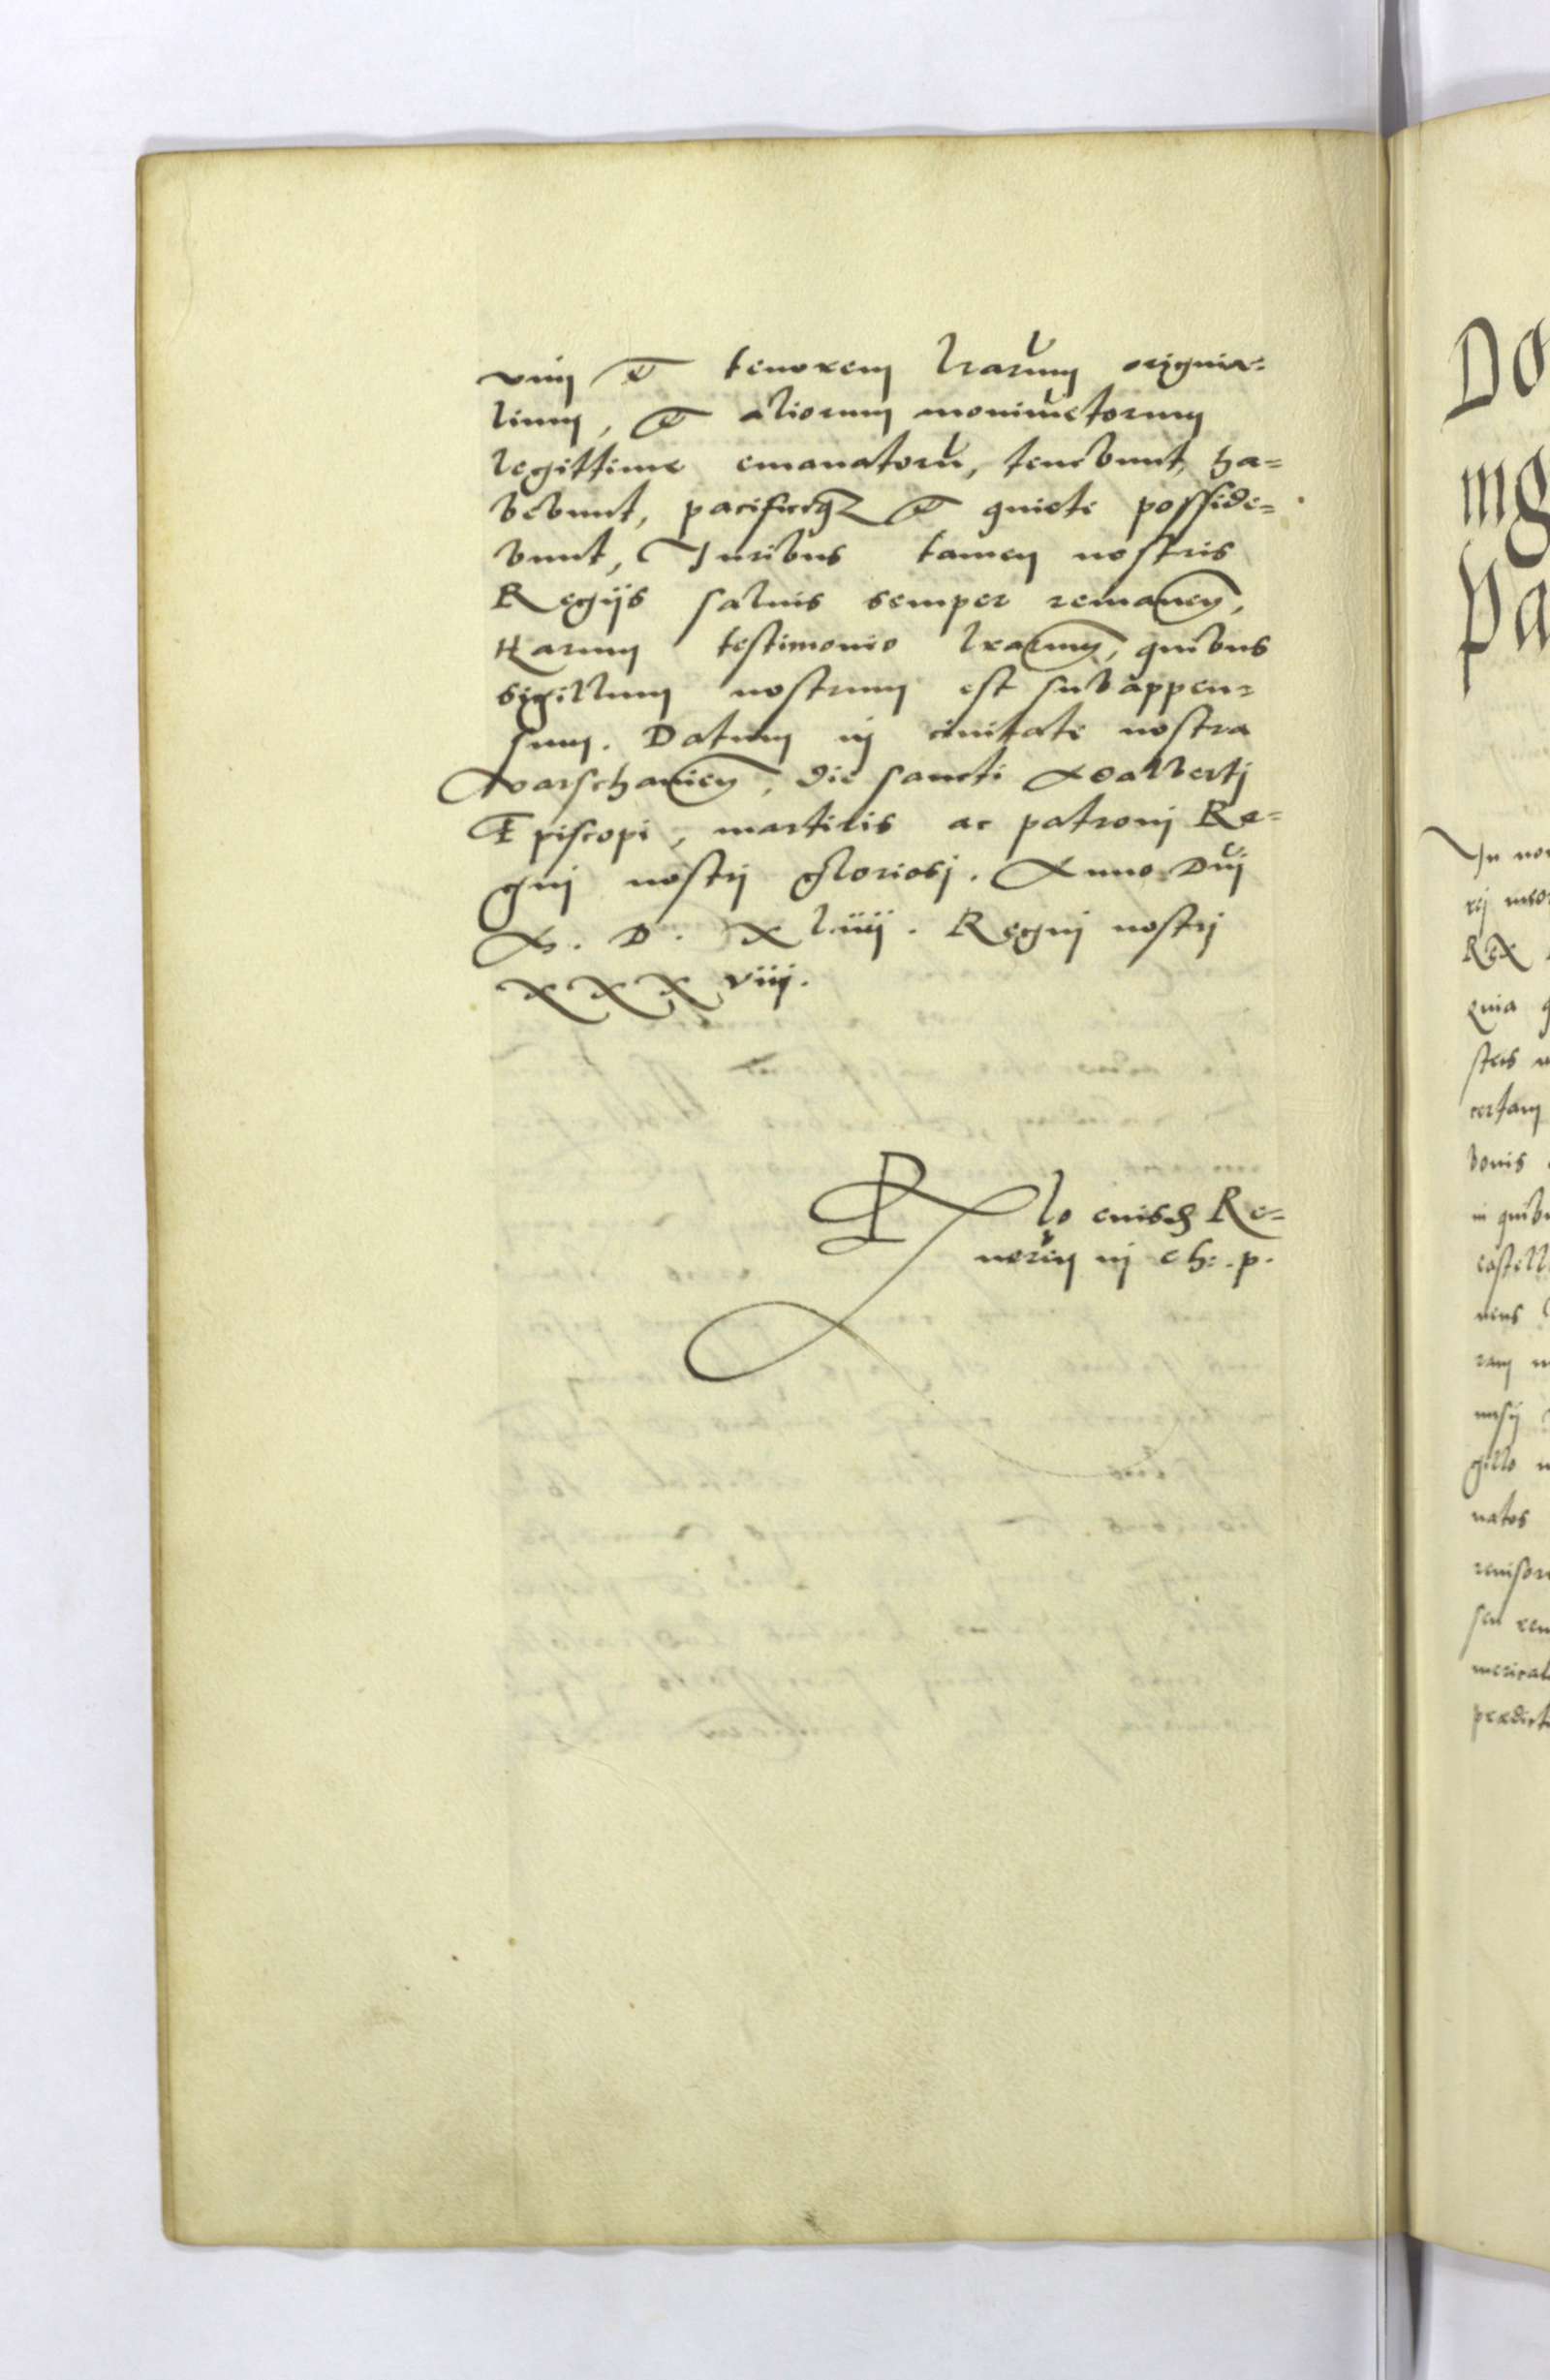 vim et tenorem lrarum origina=
lium, et aliorum monimētorum
legittime emanatorū, tenebunt, ha=
bebunt, pacificeqȝ et quiete posside=
bunt, Iuribus tamen nostris
Regijs saluis semper remaneñ,
Harum testimonio lrarum, quibus
sigillum nostrum est subappen=
sum. Datum in ciuitate nostra
Varschauieñ, die sancti Adalbertj
Episcopi, martiris ac patronj Re=
gnj nostrj gloriosj. Anno Dnj
M. D. Xliiij. Regnj nostrj
XXXviij.
Re=
in ch: p.
Do
mg
Pa
In no
REX
quia q
certam
bonis
in quib
castell
ram
gillo
natos
reuisor
seu
predict